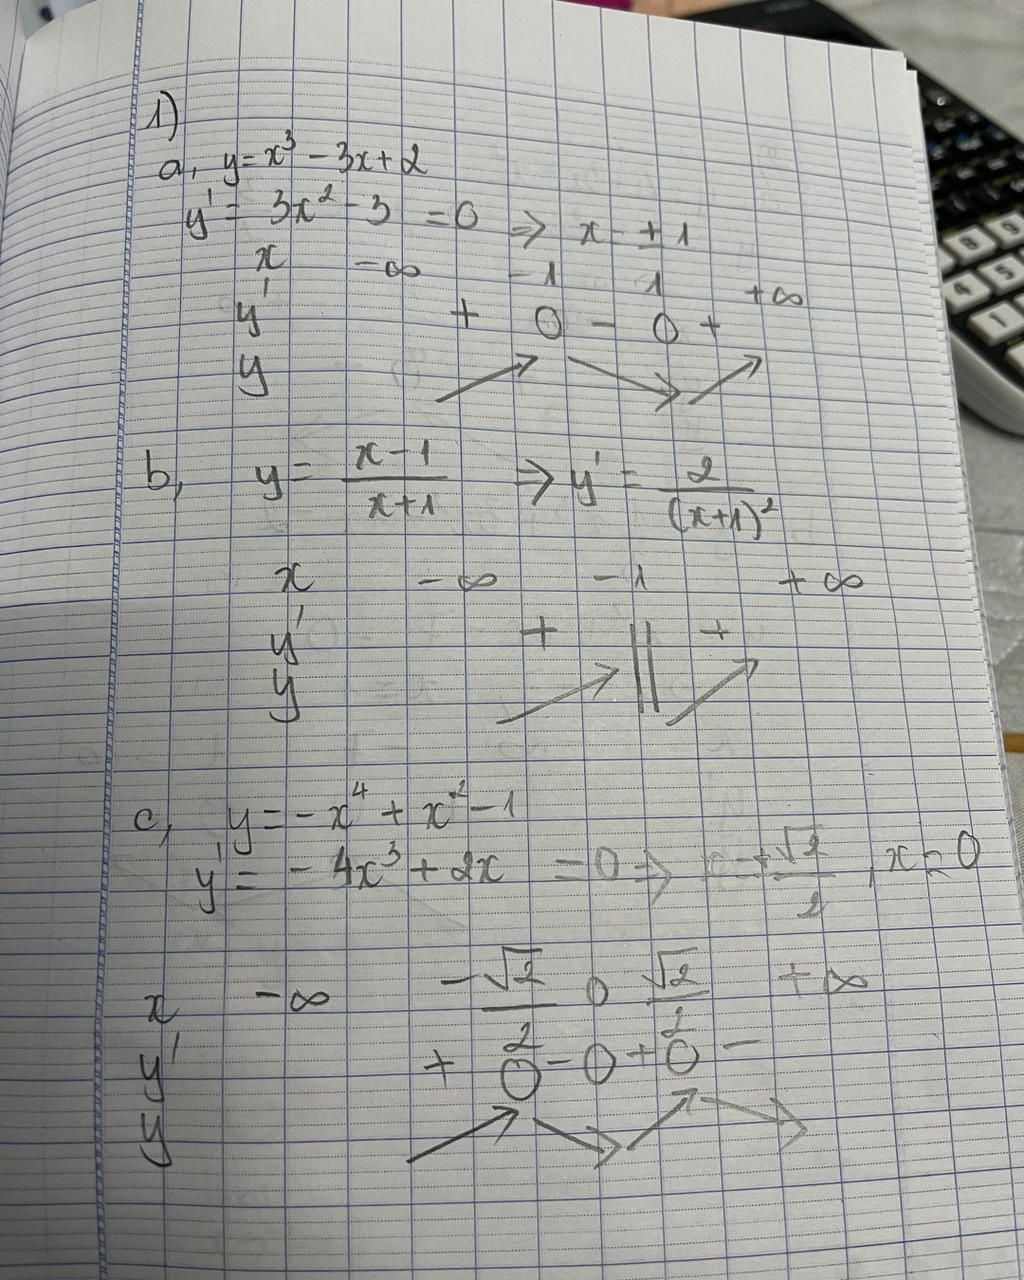 1)
a, y = x³ - 3x + 2
y' = 3x² - 3 = 0 ⇒ x = ±1
x -∞ -1 1 +∞
y' + 0 - 0 +
y ↗ ↘ ↗
b, y = (x-1)/(x+1) ⇒ y' = 2/(x+1)²
x -∞ -1 +∞
y' + || +
y ↗ || ↗
c, y = -x⁴ + x² - 1
y' = -4x³ + 2x = 0 ⇒ x = ±√2/2, x = 0
x -∞ -√2/2 0 √2/2 +∞
y' + 0 - 0 + 0 -
y ↗ ↘ ↗ ↘